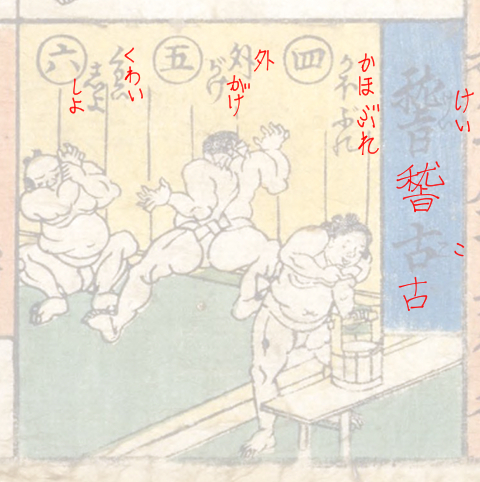 けいこ
稽古
四
かほぶれ
五
外がけ
六
くわい
しよ